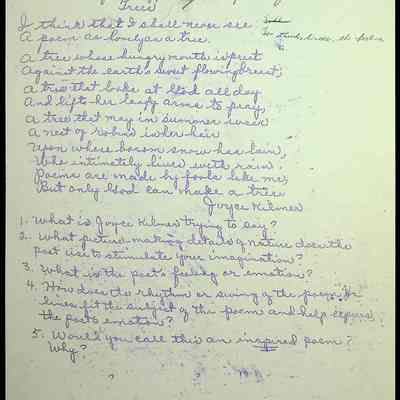 Trees
I think that I shall never see
A poem as lovely as a tree.
A tree whose hungry mouth is prest
Against the earth's sweet flowing breast;
A tree that looks at God all day
And lifts her leafy arms to pray;
A tree that may in summer wear
A nest of robins in her hair
Upon whose bosom snow has lain,
Who intimately lives with rain.
Poems are made by fools like me,
But only God can make a tree
Joyce Kilmer
1. What is Joyce Kilmer trying to say?
2. What picture-making details of nature does the
poet use to stimulate your imagination?
3. What is the poet's feeling or emotion?
4. How does the rhythm or swing of the poem's
lines fit the subject of the poem and help express
the poet's emotion?
5. Would you call this an inspired poem?
Why?